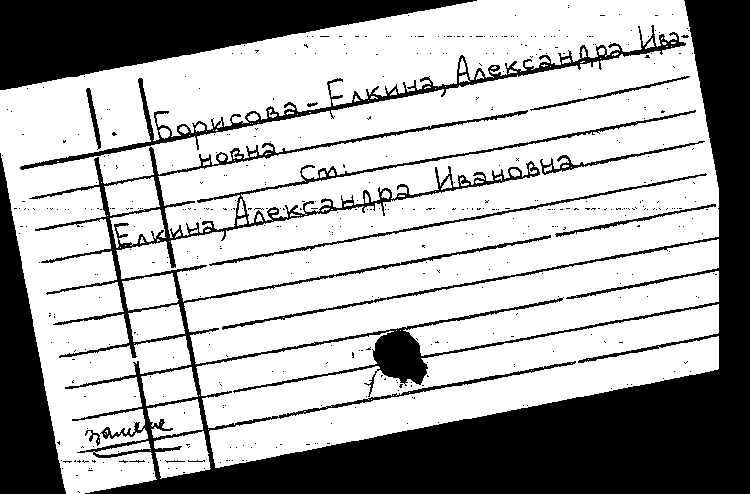 Борисова-Елкина, Александра Ива-
новна.
См:
Елкина, Александра Ивановна.